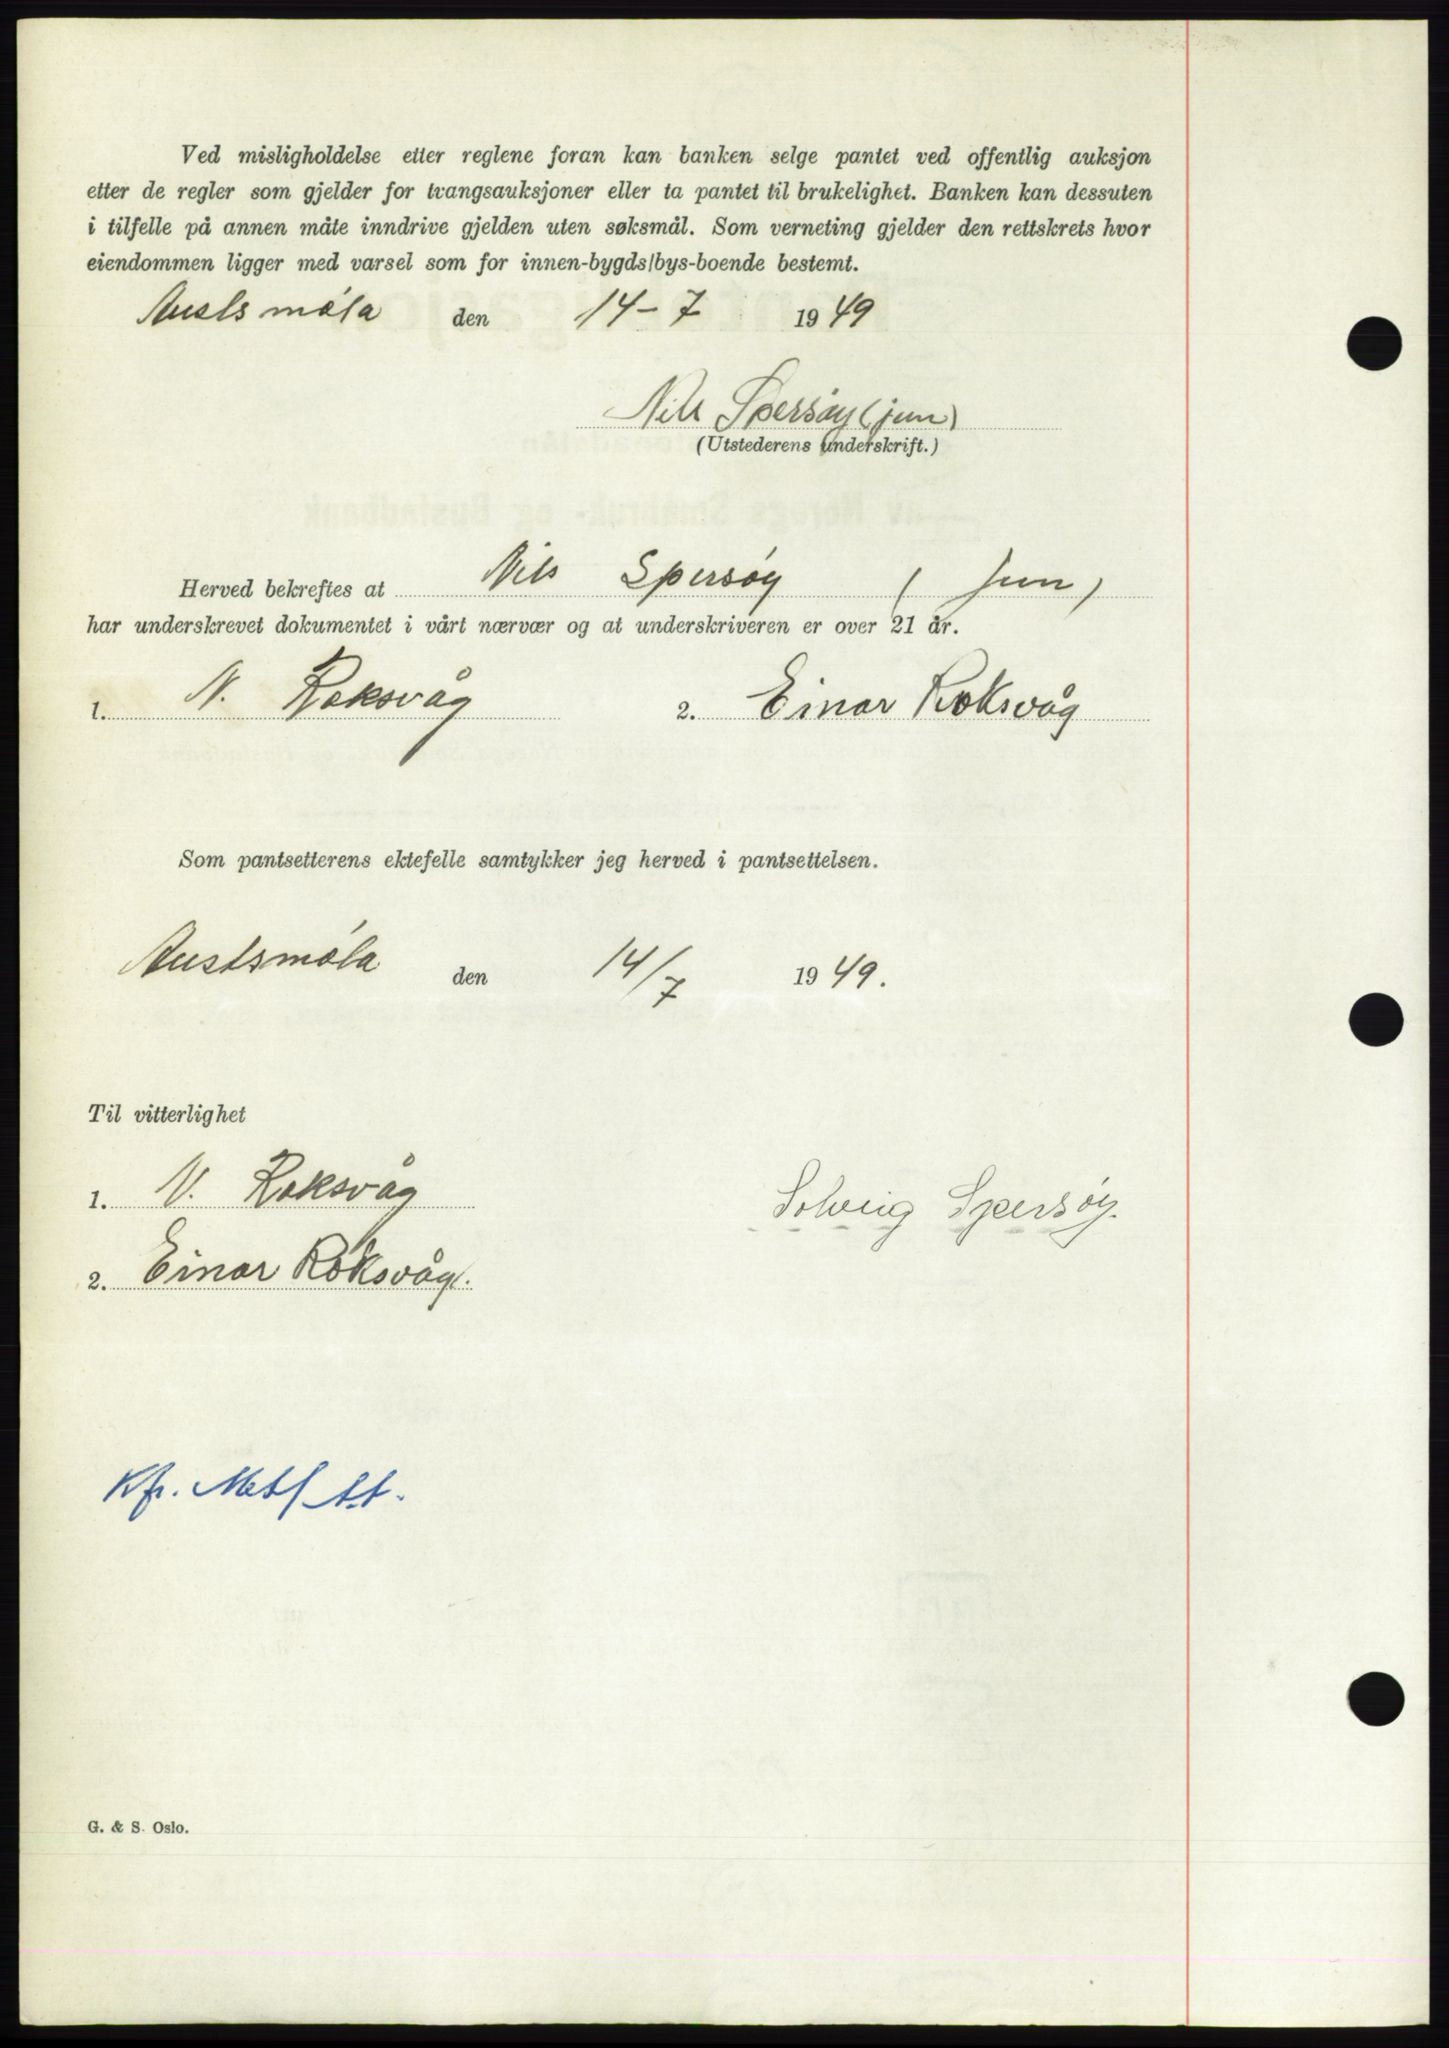 Ved misligholdelse etter reglene foran kan banken selge pantet ved offentlig auksjon
etter de regler som gjelder for tvangsauksjoner eller ta pantet til brukelighet. Banken kan dessuten
i tilfelle på annen måte inndrive gjelden uten søksmål. Som verneting gjelder den rettskrets hvor
eiendommen ligger med varsel som for innen-bygds/bys-boende bestemt.
Austsmøla den 14-7 1949
Nils Spersøy (jun)
(Utstederens underskrift.)
Herved bekreftes at Nils Spersøy (jun)
har underskrevet dokumentet i vårt nærvær og at underskriveren er over 21 år.
1. N. Roksvåg 2. Einar Roksvåg
Som pantsetterens ektefelle samtykker jeg herved i pantsettelsen.
Austsmøla den 14/7 1949.
Til vitterlighet
1. N. Roksvåg Solveig Spersøy.
2. Einar Roksvåg.
Kfr.
G. & S. Oslo.